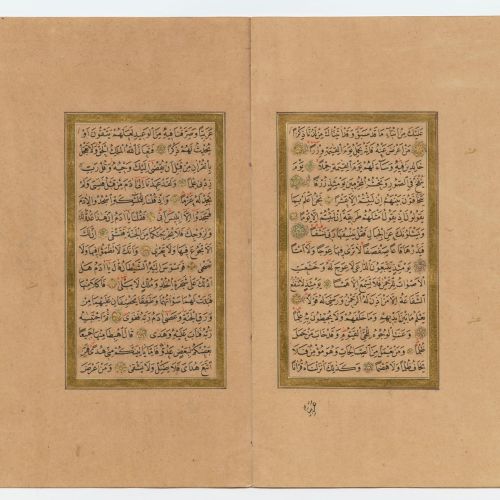 عَلَيْكَ مِنْ اَنْبَاءِ مَا قَدْ سَبَقَ وَقَدْ اٰتَيْنَاكَ مِنْ لَدُنَّا ذِكْرًا
مَنْ اَعْرَضَ عَنْهُ فَاِنَّهُ يَحْمِلُ يَوْمَ الْقِيٰمَةِ وِزْرًا
خَالِدِينَ فِيهِ وَسَاءَ لَهُمْ يَوْمَ الْقِيٰمَةِ حِمْلًا يَوْمَ
يُنْفَخُ فِي الصُّورِ وَنَحْشُرُ الْمُجْرِمِينَ يَوْمَئِذٍ زُرْقًا
يَتَخَافَتُونَ بَيْنَهُمْ اِنْ لَبِثْتُمْ اِلَّا عَشْرًا نَحْنُ اَعْلَمُ بِمَا
يَقُولُونَ اِذْ يَقُولُ اَمْثَلُهُمْ طَرِيقَةً اِنْ لَبِثْتُمْ اِلَّا يَوْمًا
وَيَسْئَلُونَكَ عَنِ الْجِبَالِ فَقُلْ يَنْسِفُهَا رَبِّي نَسْفًا
فَيَذَرُهَا قَاعًا صَفْصَفًا لَا تَرٰى فِيهَا عِوَجًا وَلَا اَمْتًا
يَوْمَئِذٍ يَتَّبِعُونَ الدَّاعِيَ لَا عِوَجَ لَهُ وَخَشَعَتِ
الْاَصْوَاتُ لِلرَّحْمٰنِ فَلَا تَسْمَعُ اِلَّا هَمْسًا يَوْمَئِذٍ لَا تَنْفَعُ
الشَّفَاعَةُ اِلَّا مَنْ اَذِنَ لَهُ الرَّحْمٰنُ وَرَضِيَ لَهُ قَوْلًا
يَعْلَمُ مَا بَيْنَ اَيْدِيهِمْ وَمَا خَلْفَهُمْ وَلَا يُحِيطُونَ بِهِ عِلْمًا
وَعَنَتِ الْوُجُوهُ لِلْحَيِّ الْقَيُّومِ وَقَدْ خَابَ مَنْ حَمَلَ
ظُلْمًا وَمَنْ يَعْمَلْ مِنَ الصَّالِحَاتِ وَهُوَ مُؤْمِنٌ فَلَا
يَخَافُ ظُلْمًا وَلَا هَضْمًا وَكَذٰلِكَ اَنْزَلْنَاهُ قُرْاٰنًا
عربيا
عَرَبِيًّا وَصَرَّفْنَا فِيهِ مِنَ الْوَعِيدِ لَعَلَّهُمْ يَتَّقُونَ اَوْ
يُحْدِثُ لَهُمْ ذِكْرًا فَتَعَالَى اللّٰهُ الْمَلِكُ الْحَقُّ وَلَا تَعْجَلْ
بِالْقُرْاٰنِ مِنْ قَبْلِ اَنْ يُقْضٰى اِلَيْكَ وَحْيُهُ وَقُلْ رَبِّ
زِدْنِي عِلْمًا وَلَقَدْ عَهِدْنَا اِلٰى اٰدَمَ مِنْ قَبْلُ فَنَسِيَ وَلَمْ
نَجِدْ لَهُ عَزْمًا وَاِذْ قُلْنَا لِلْمَلٰئِكَةِ اسْجُدُوا لِاٰدَمَ
فَسَجَدُوا اِلَّا اِبْلِيسَ اَبٰى فَقُلْنَا يَا اٰدَمُ اِنَّ هٰذَا عَدُوٌّ لَكَ
وَلِزَوْجِكَ فَلَا يُخْرِجَنَّكُمَا مِنَ الْجَنَّةِ فَتَشْقٰى اِنَّ لَكَ
اَلَّا تَجُوعَ فِيهَا وَلَا تَعْرٰى وَاَنَّكَ لَا تَظْمَؤُا فِيهَا وَلَا
تَضْحٰى فَوَسْوَسَ اِلَيْهِ الشَّيْطَانُ قَالَ يَا اٰدَمُ هَلْ
اَدُلُّكَ عَلٰى شَجَرَةِ الْخُلْدِ وَمُلْكٍ لَا يَبْلٰى فَاَكَلَا مِنْهَا
فَبَدَتْ لَهُمَا سَوْاٰتُهُمَا وَطَفِقَا يَخْصِفَانِ عَلَيْهِمَا مِنْ
وَرَقِ الْجَنَّةِ وَعَصٰى اٰدَمُ رَبَّهُ فَغَوٰى ثُمَّ اجْتَبٰيهُ
رَبُّهُ فَتَابَ عَلَيْهِ وَهَدٰى قَالَ اهْبِطَا مِنْهَا جَمِيعًا
بَعْضُكُمْ لِبَعْضٍ عَدُوٌّ فَاِمَّا يَاْتِيَنَّكُمْ مِنِّي هُدًى فَمَنِ
اتَّبَعَ هُدَايَ فَلَا يَضِلُّ وَلَا يَشْقٰى وَمَنْ اَعْرَضَ